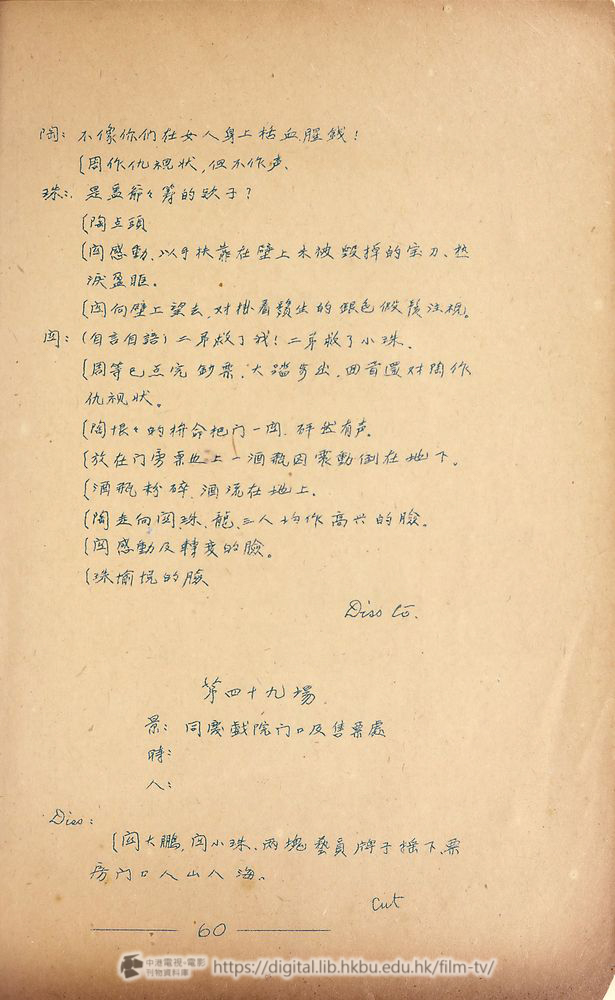 陶：不像你们在女人身上枯血腥钱！
{周作仇視狀，但不作声、
珠：是孟爺々筹的欵子？
{陶点頭
{図感動、以手扶靠在壁上未被毀掉的宝刀、热
淚盈眶。
{図向壁上望去，对掛着鬚生的銀色假鬚注視。
図：(自言自語)二弟救了我！二弟救了小珠、
{周等已点完鈔票、大踏步出、回首還对陶作
仇視状。
{陶恨々的拚命把门一図、砰然有声。
{放在门旁票上一酒瓶因震動倒在地下。
{酒瓶粉碎、酒流在地上、
{陶走向図珠、龍、三人均作高兴的臉。
{図感動及轉变的臉。
{珠愉悅的臉
Diss to.
第四十九場
景：同慶戯院门口及售票處
時：
人：
Diss：
{図大鵬，図小珠、两塊藝員牌子摇下、票
房门口人山人海、
cut
60
中港電視·電影
刊物資料庫
https://digital.lib.hkbu.edu.hk/film-tv/